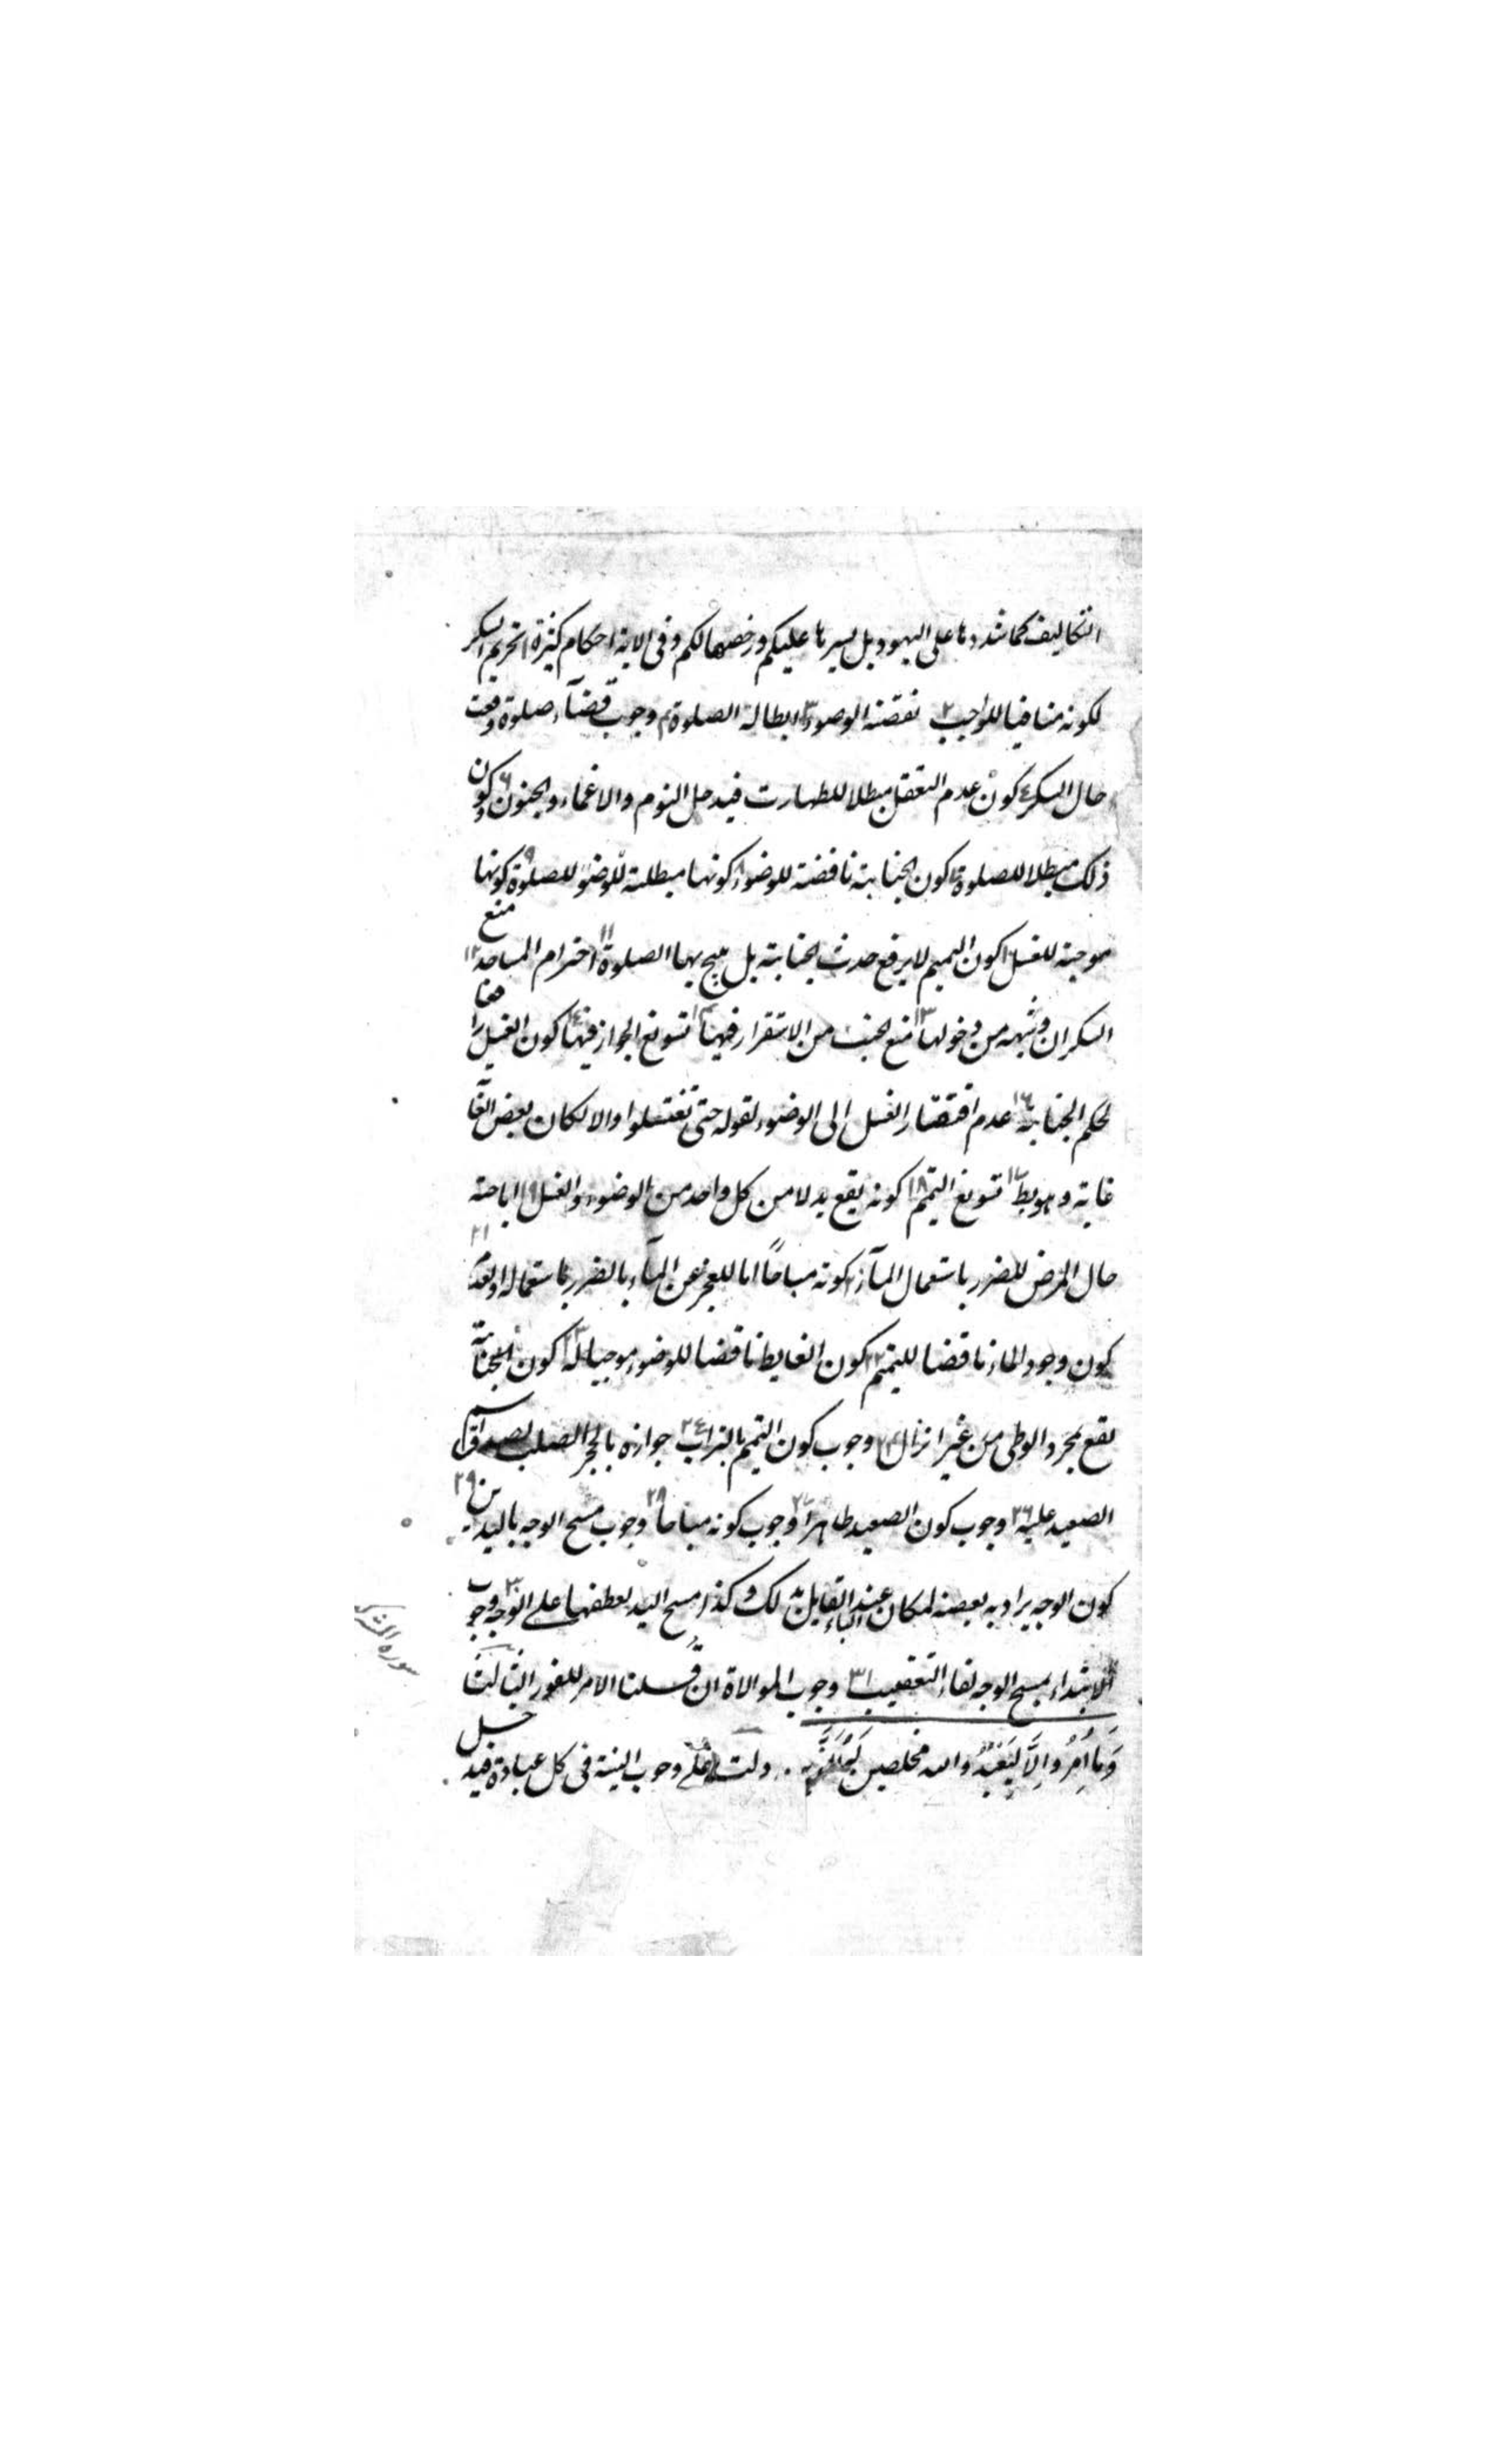 التكاليف كما شددها على اليهود بل يسرها عليكم ورخصها لكم وفي الاية احكام كثيرة ا تحريم السكر
لكونه منافيا للواجب ٢ نقضه الوضوء ٣ ابطاله الصلوة ٣ وجوب قضآء صلوة وقعت
حال السكر ٤ كون عدم التعقل مبطلا للطهارت فيدخل النوم والاغماء والجنون ٦ كون
ذلك مبطلا للصلوة ٧ كون الجنابة ناقضة للوضوء ٨ كونها مبطلة للوضو للصلوة ٩ كونها
موجبة للغسل ١٠ كون التيمم لا يرفع حدث الجنابة بل يبيح بها الصلوة ١١ احترام المساجد ١٢ منع
السكران وشبهه من دخولها ١٣ منع الجنب من الاستقرار فيها ١٣ تسويغ الجواز فيها ١٤ كون الغسل رافعا
لحكم الجنابة ١٦ عدم افتقار الغسل الى الوضوء لقوله حتى تغتسلوا والا لكان بعض الغا
غاية وهو بط ١٧ تسويغ التيمم ١٨ كونه يقع بدلا من كل واحد من الوضوء والغسل ١٩ اباحته
حال المرض للضرر باستعمال المآء ٢٠ كونه مباحاً اما للعجز عن المآء بالضرر باستعماله او بعدمه ٢١
كون وجود الماء ناقضا للتيمم ٢٢ كون الغايط ناقضا للوضوء موجبا له ٢٣ كون الجنابة
تقع بمجرد الوطى من غير انزال ٢٣ وجوب كون التيمم بالتراب ٢٤ جوازه بالحجر الصلب لصدق اسم
الصعيد عليه ٢٦ وجوب كون الصعيد طاهرا ٢٧ وجوب كونه مباحا ٢٨ وجوب مسح الوجه باليدين ٢٩
كون الوجه يراد به بعضه لمكان الباء عند القايل بذلك وكذا مسح اليد لعطفها على الوجه ٣٠ وجوب
الابتداء بمسح الوجه لفاء التعقيب ٣١ وجوب الموالاة ان قلنا الامر للفور الثالثة
وَمَا اُمِرُوا اِلَّا لِيَعْبُدُوا الله مخلصين دلت على وجوب النية في كل عبادة فيدخل